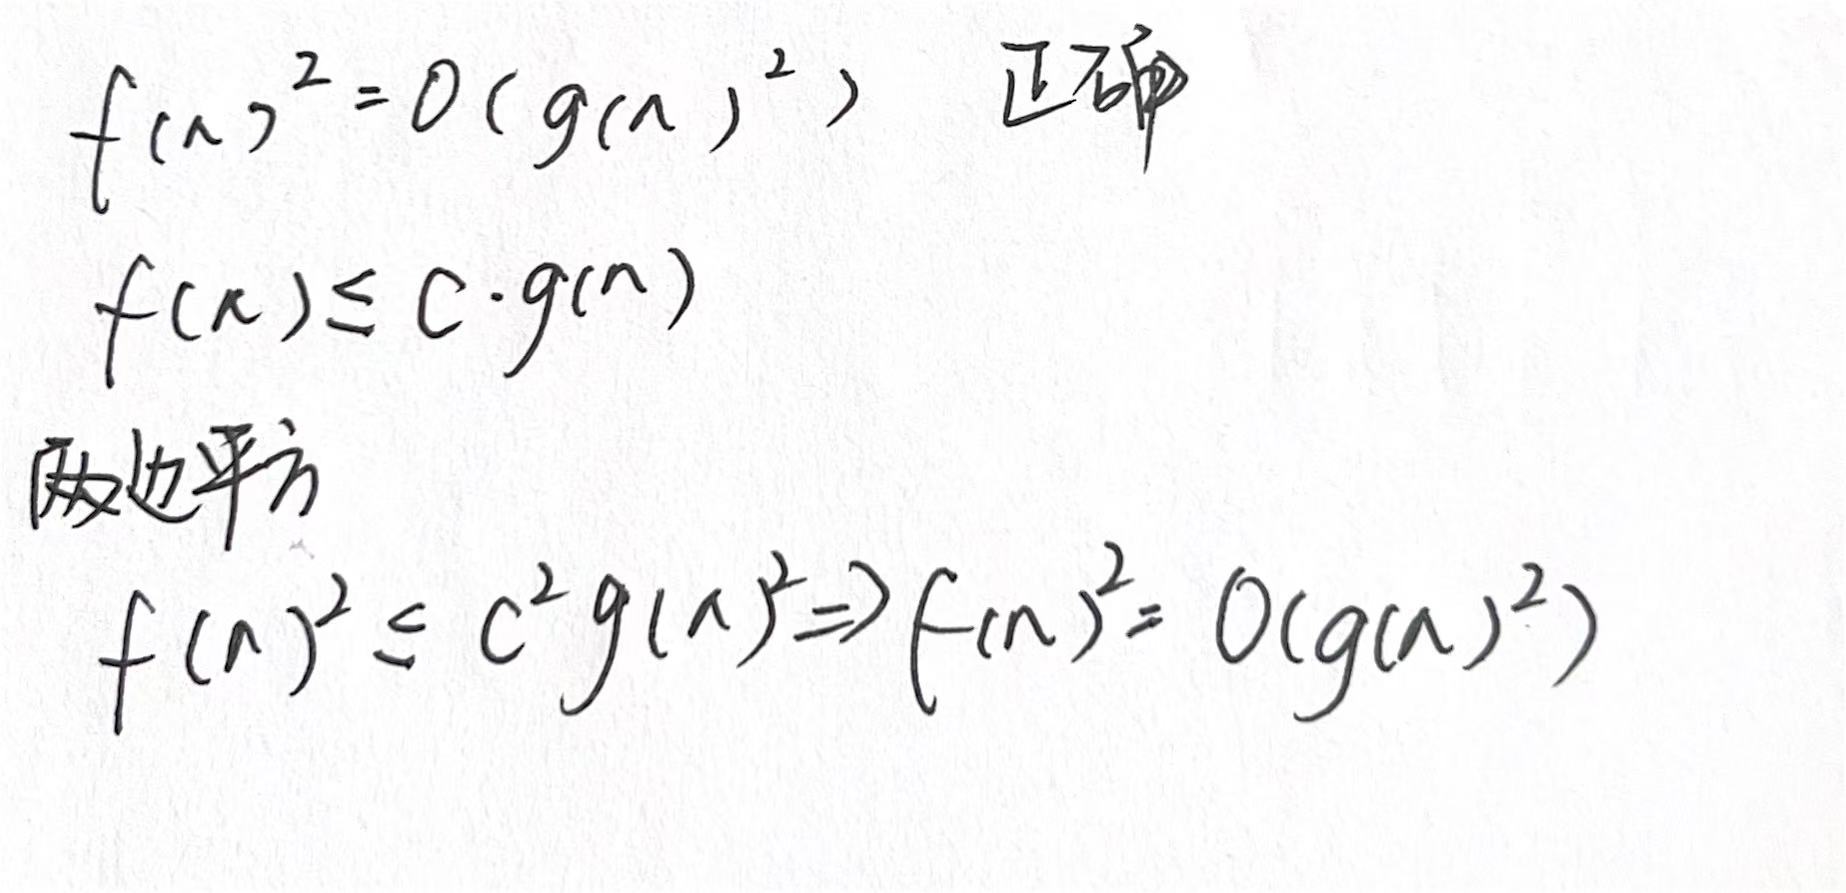 f(n)² = O(g(n)²) 正确
f(n) ≤ C·g(n)
两边平方
f(n)² ≤ C²g(n)² ⇒ f(n)² = O(g(n)²)